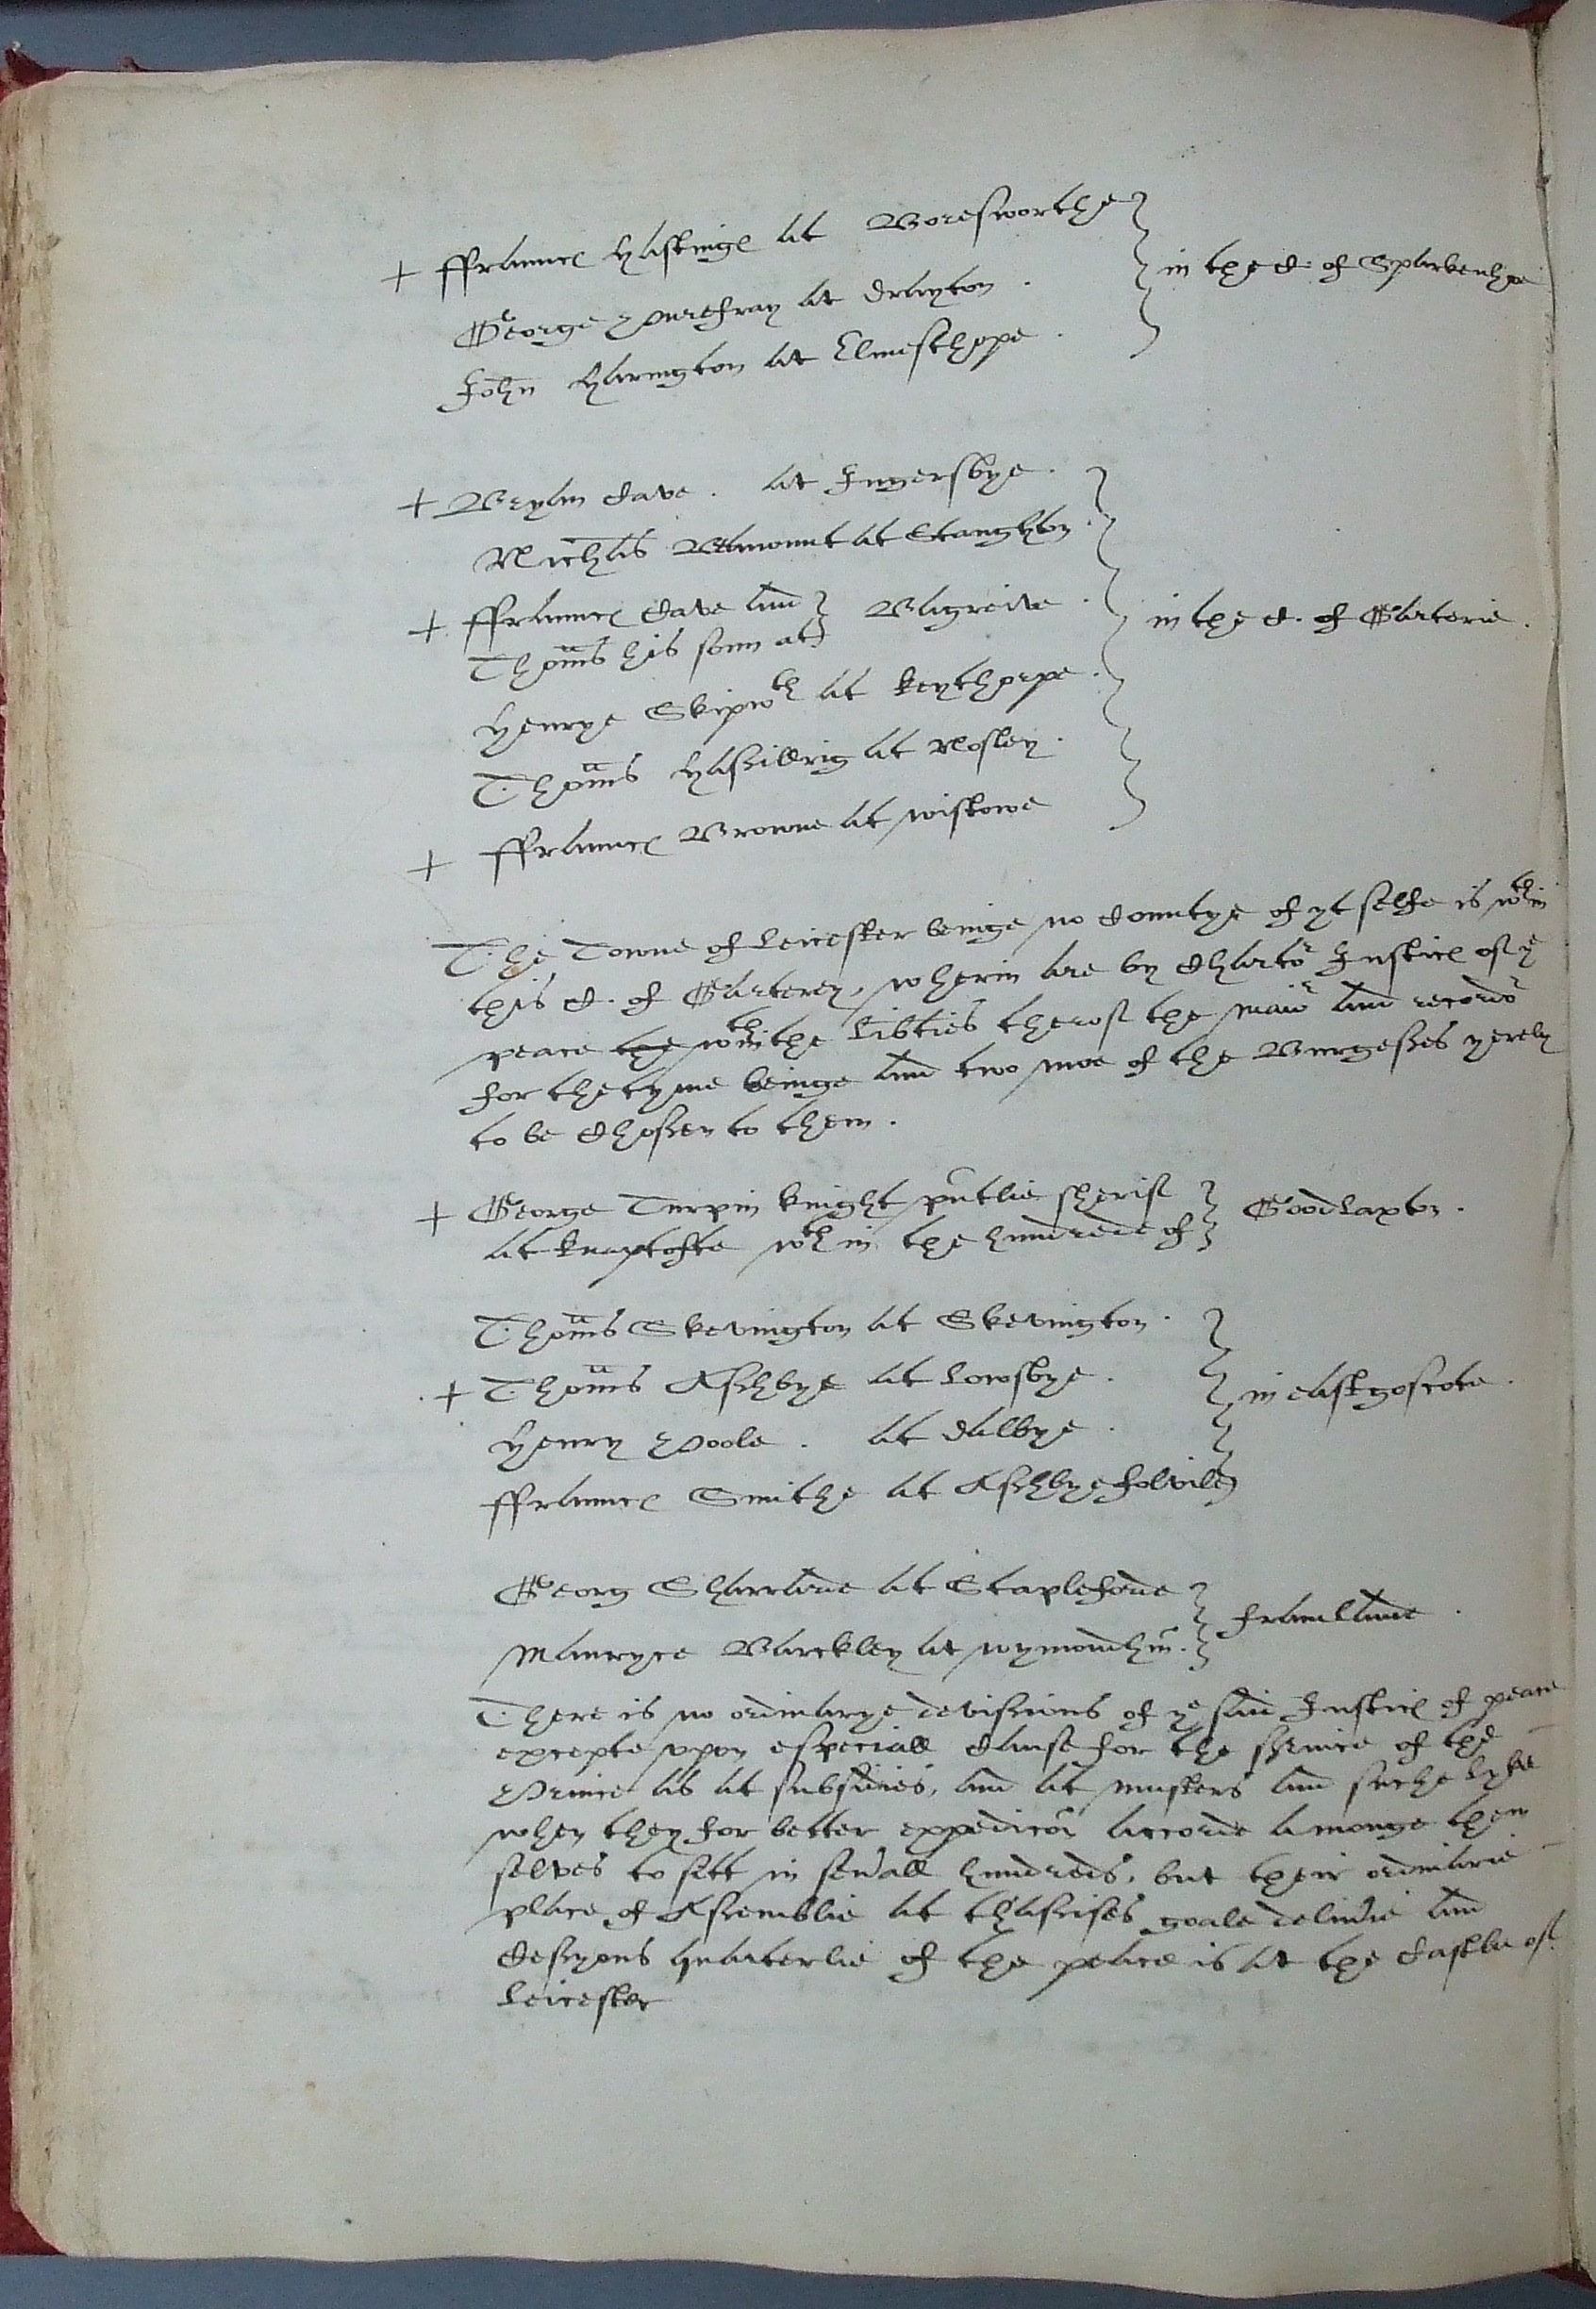 + ffraunces Hastinges at Boresworthe
George Purefray at drayton .
John Harington at Elmesthope .
in the C. of Sparkenhoe
+ Bryan Cave . at Ingersbye .
Nichas Beamount at Staughton .
+ ffraunces Cave and
Thoms his sonn at
Bagreive .
Henrye Skipwth at Keythorpe .
Thoms Hassillrig at Nosley .
+ ffraunces Browne at wistowe
in the C. of Gartorie .
The Towne of Leicester beinge no Countye of yt selfe is wthin
this C. of Garterey, wherin are by Charto Justices of ye
peace the wthin the Libties therof the maior and recordor
for the tyme beinge and two moe of the Burgesses yerely
to be Chossen to them .
+ George Turpin knight putlie sherif
at knaptofte wthin the hundrede of
Goodlaxton .
Thoms Skevington at Skevington .
+ Thoms Asshbye at Lowsbye .
Henry Poole . at dalbye .
ffraunces Smithe at Asshbye folvile
in eastgoscote .
Georg Sharrarde at Stapleforde
Mauryce Barckley at wymondhm .
framlande .
There is no ordinarye devissions of ye said Justices of peace
excepte vpon especiall Cause for the service of the
Prince as at subsidies, and at musters and suche lyke
when they for better expedicon accorde amonge them
selves to sitt in seuall hundreds, but their ordinarie
place of Assemblie at thassises goale deliuie and
Sessyons quarterlie of the peace is at the Castle of
Leicester